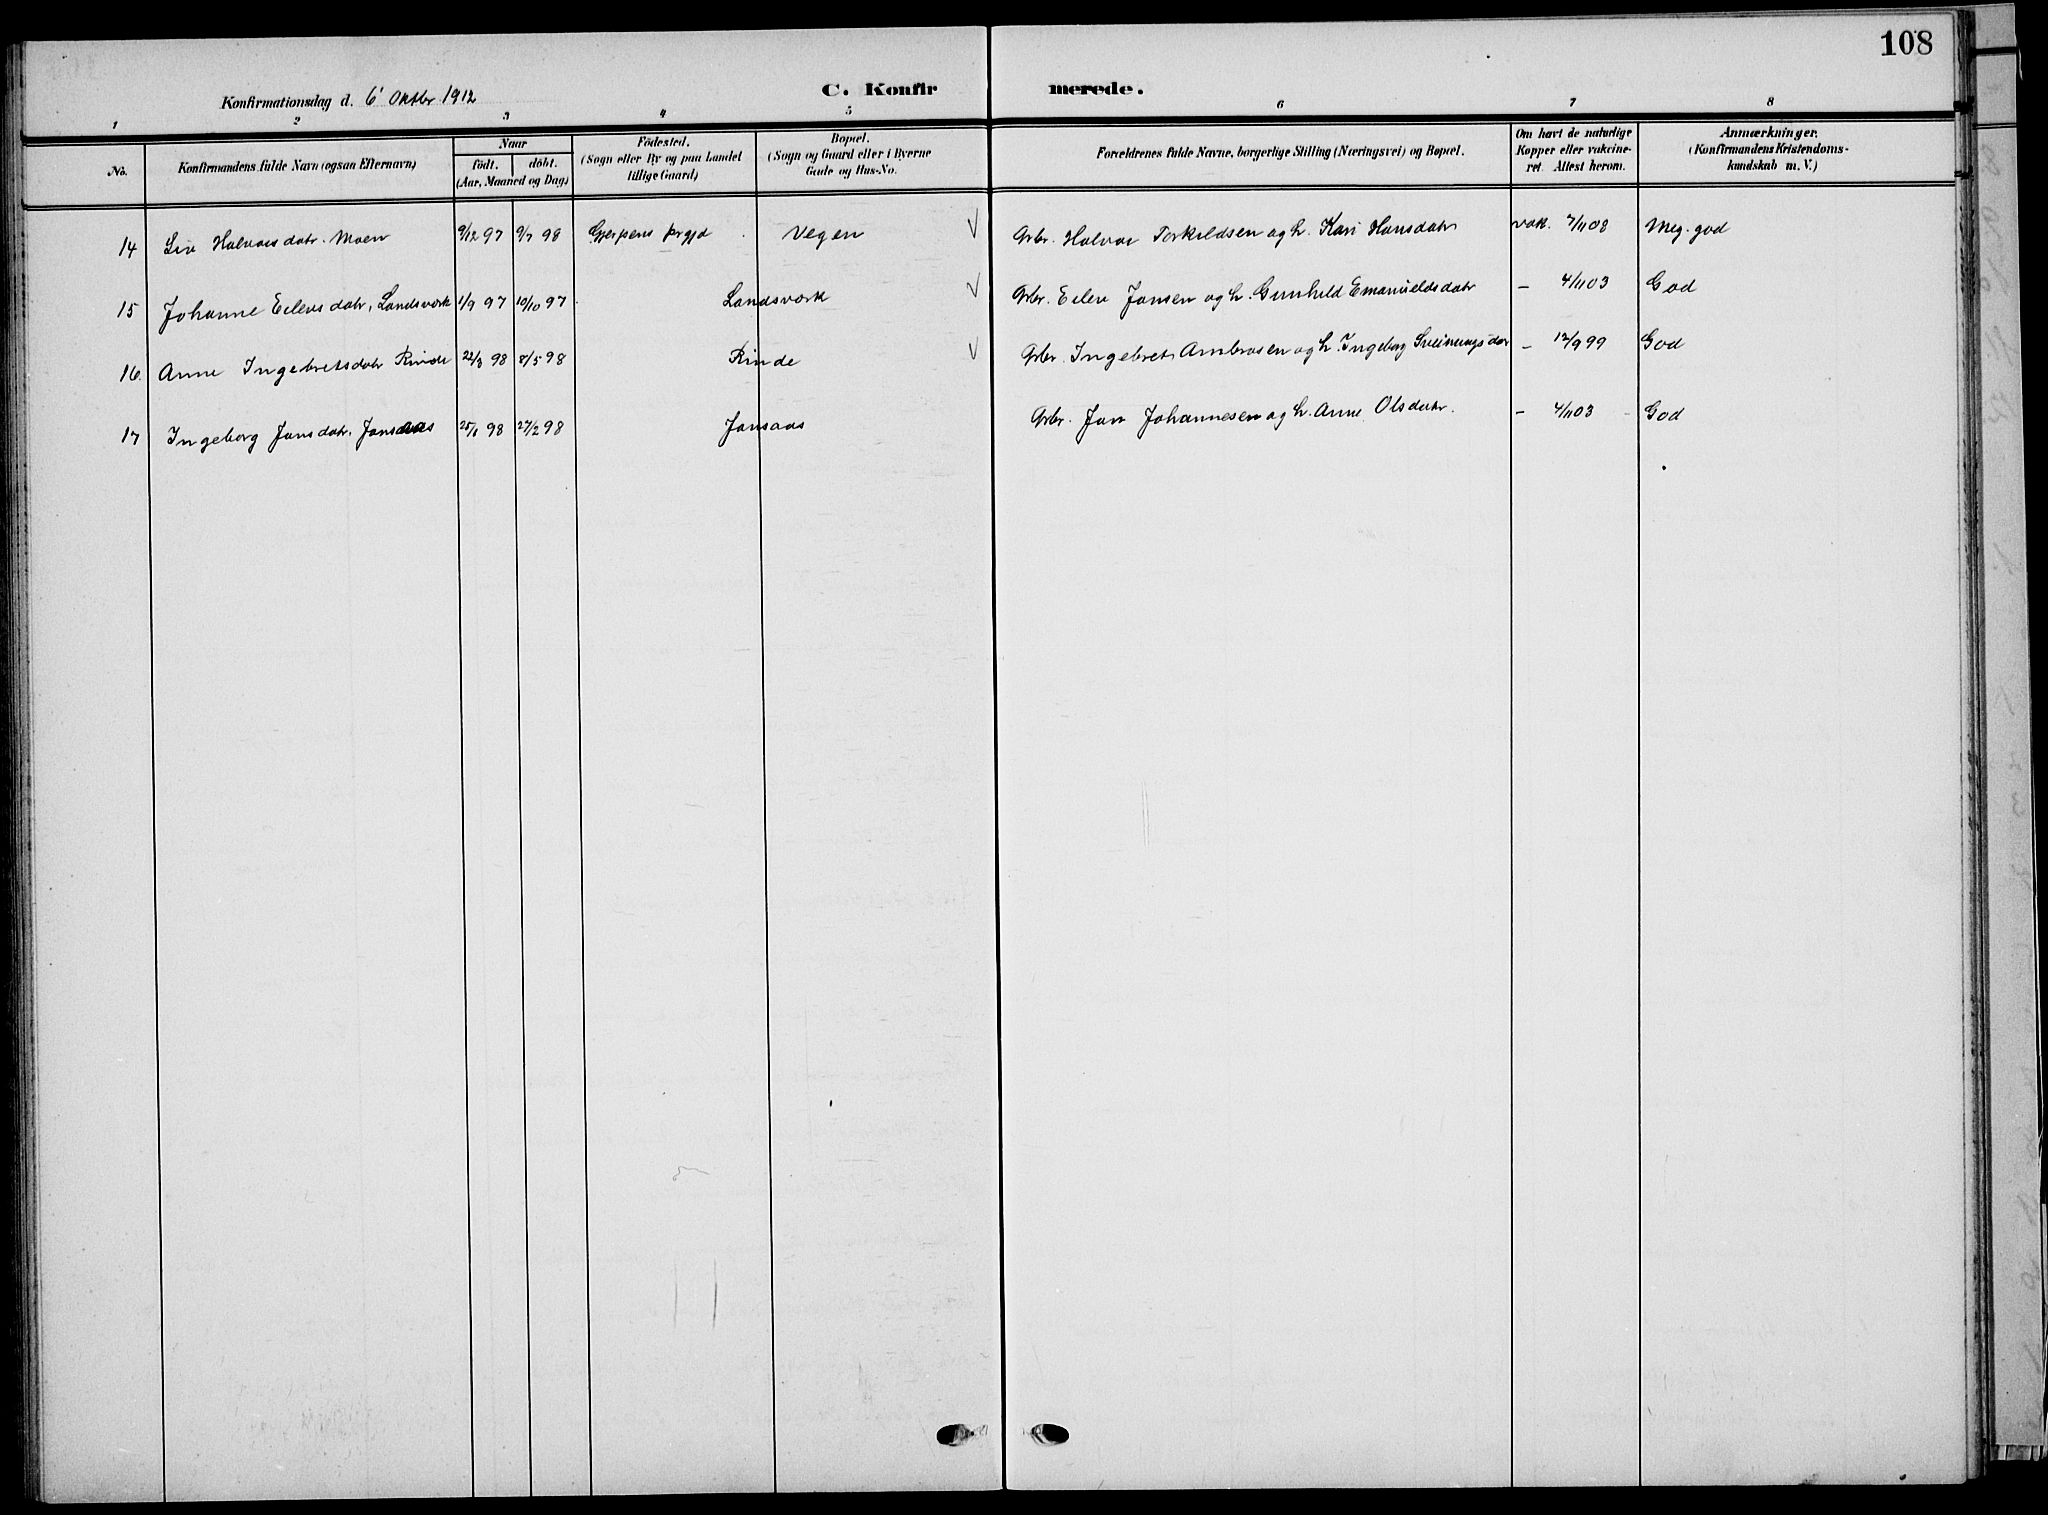 108
Konfirmationsdag d. 6' Oktbr 1912 C. Konfir merede.
1 2 3 4 5 6 7 8
No. Konfirmandens fulde Navn (ogsaa Efternavn) Naar födt. döbt. (Aar, Maaned og Dag) Födested. (Sogn eller By og paa Landet tillige Gaard) Bopæl. (Sogn og Gaard eller i Byerne Gade og Hus-No. Forældrenes fulde Navne, borgerlige Stilling (Næringsvei) og Bopæl. Om havt de naturlige Kopper eller vakcineret. Attest herom. Anmærkninger. (Konfirmandens Kristendomskundskab m. V.)
14 Liv Halvorsdatr. Moen 9/12 97 9/7 98 Gjerpens prgjd. Vegen √ Grbr. Halvor Torkildsen og h. Kari Hansdatr vak. 7/11 08 Meg. god
15 Johanne Eilevsdatr, Landsværk 1/9 97 10/10 97 Landsværk √ Grbr. Eilev Jansen og h. Gunhild Emanuelsdatr – 4/11 03 God
16. Anne Ingebretsdatr Rinde 22/3 98 8/5 98 Rinde √ Grbr. Ingebret Ambrosen og h. Ingeborg Sveinungsdar – 12/9 99 God
17 Ingeborg Jonsdatr. Jonsaas 25/1 98 27/2 98 Jonsaas Grbr. Jon Johannesen og h. Anne Olsdatr. – 4/11 03 God